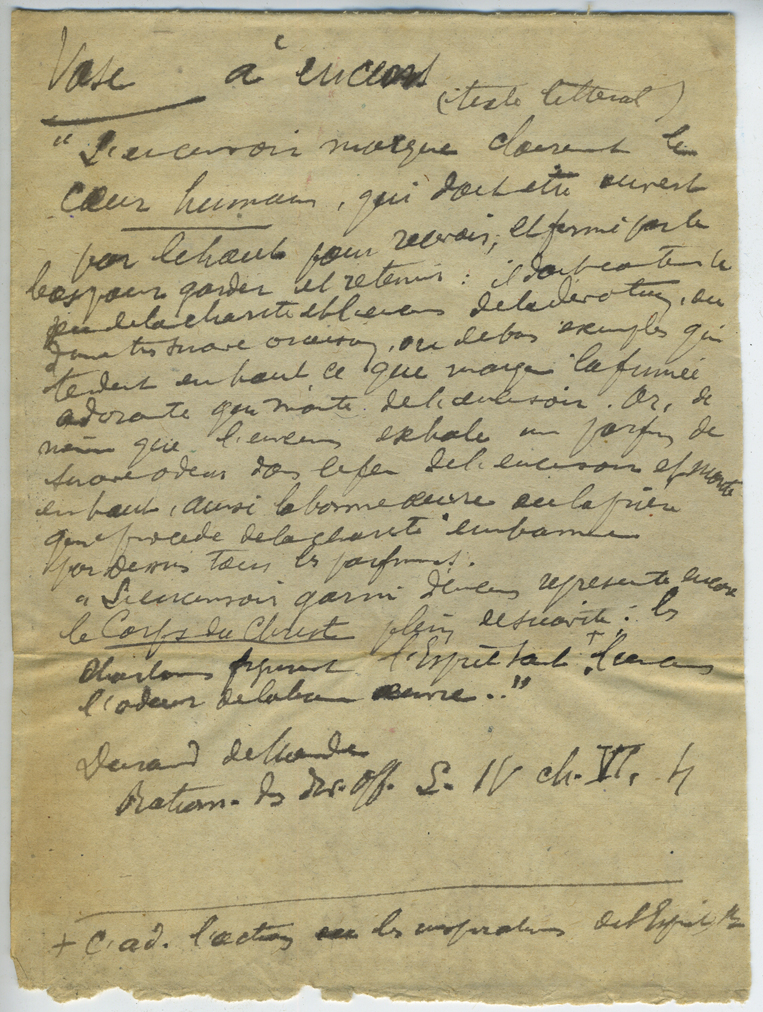 Vase à encens
(texte littéral)
"L'encensoir marque clairement le
cœur humain, qui doit être ouvert
par le haut pour recevoir, et fermé par le
bas pour garder et retenir : il doit contenir le
feu de la charité et l'encens de la dévotion, ou
d'une très suave oraison, ou de bons exemples qui
tendent en haut ce que marque la fumée
odorante qui monte de l'encensoir. Or, de
même que l'encens exhale un parfum de
suave odeur dans le feu de l'encensoir et monte
en haut, ainsi la bonne œuvre ou la prière
qui procède de la charité embaume
par dessus tous les parfums.
"L'encensoir garni d'encens représente encore
le Corps du Christ plein de suavité : les
charbons figurent l'Esprit Saint +, l'encens
l'odeur de la bonne œuvre.."
Durand de Mende
Ration. des div. off. L. IV ch. VI.
+ C.ad. l'action ou les inspirations de l'Esprit St